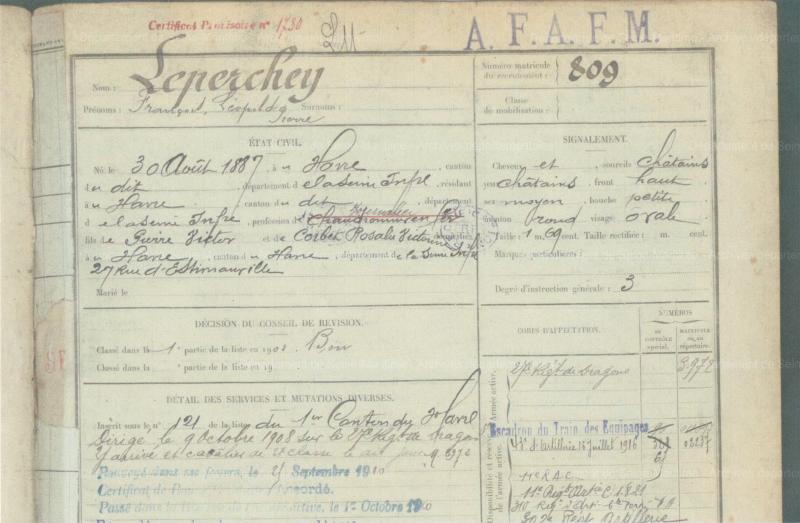 Certificat Provisoire n° 1730
A. F. A. F. M.
Nom : Leperchey
Prénoms : François, Léopold, Pierre Surnoms :
Numéro matricule du recrutement : 809
Classe de mobilisation :
ÉTAT CIVIL.
Né le 30 Août 1887, à u Havre, canton
d u dit, département d e la Seine Infre, résidant
à u Havre, canton d u dit, département
d e la Seine Infre, profession de Chaudronnier en fer
fils de Pierre Victor et de Corbet Rosalie Victorine
à u Havre, canton d u Havre, département de la Seine Infre
27 Rue d'Estimauville
Marié le
SIGNALEMENT.
Cheveux et sourcils châtains
yeux châtains, front haut
nez moyen, bouche petite
menton rond visage ovale
Taille : 1 m. 69 cent. Taille rectifiée : m. cent.
Marques particulières :
Degré d'instruction générale : 3
DÉCISION DU CONSEIL DE REVISION.
Classé dans la 1e partie de la liste en 1908 Bon
Classé dans la partie de la liste en 19
DÉTAIL DES SERVICES ET MUTATIONS DIVERSES.
Inscrit sous le n° 121 de la liste du 1er Canton du Havre
Dirigé le 9 Octobre 1908 sur le 27e Régt de Dragons
Y arrivé et cavalier de 2e classe le dit jour
Renvoyé dans ses foyers, le 21 Septembre 1910
Certificat de Bonne accordé.
Passé dans la le 1er Octobre 1910
CORPS D'AFFECTATION.
NUMÉROS
au contrôle spécial.
matricule ou au répertoire.
Armée active.
27e Régt de Dragons
Disponibilité et réserve de l'armée active.
Escadron du Train des Equipages
d'Artillerie 16 juillet 1916
11e R.A.C.